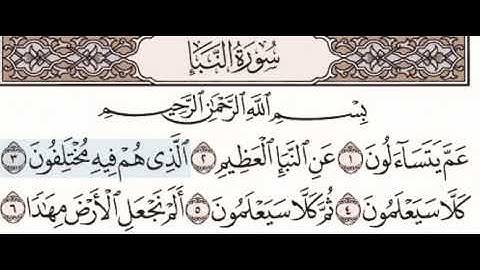 سُورَةُ النَّبَإِ
بِسْمِ اللَّهِ الرَّحْمَٰنِ الرَّحِيمِ
عَمَّ يَتَسَآءَلُونَ ١ عَنِ النَّبَإِ الْعَظِيمِ ٢ الَّذِى هُمْ فِيهِ مُخْتَلِفُونَ ٣
كَلَّا سَيَعْلَمُونَ ٤ ثُمَّ كَلَّا سَيَعْلَمُونَ ٥ أَلَمْ نَجْعَلِ الْأَرْضَ مِهَٰدًا ٦